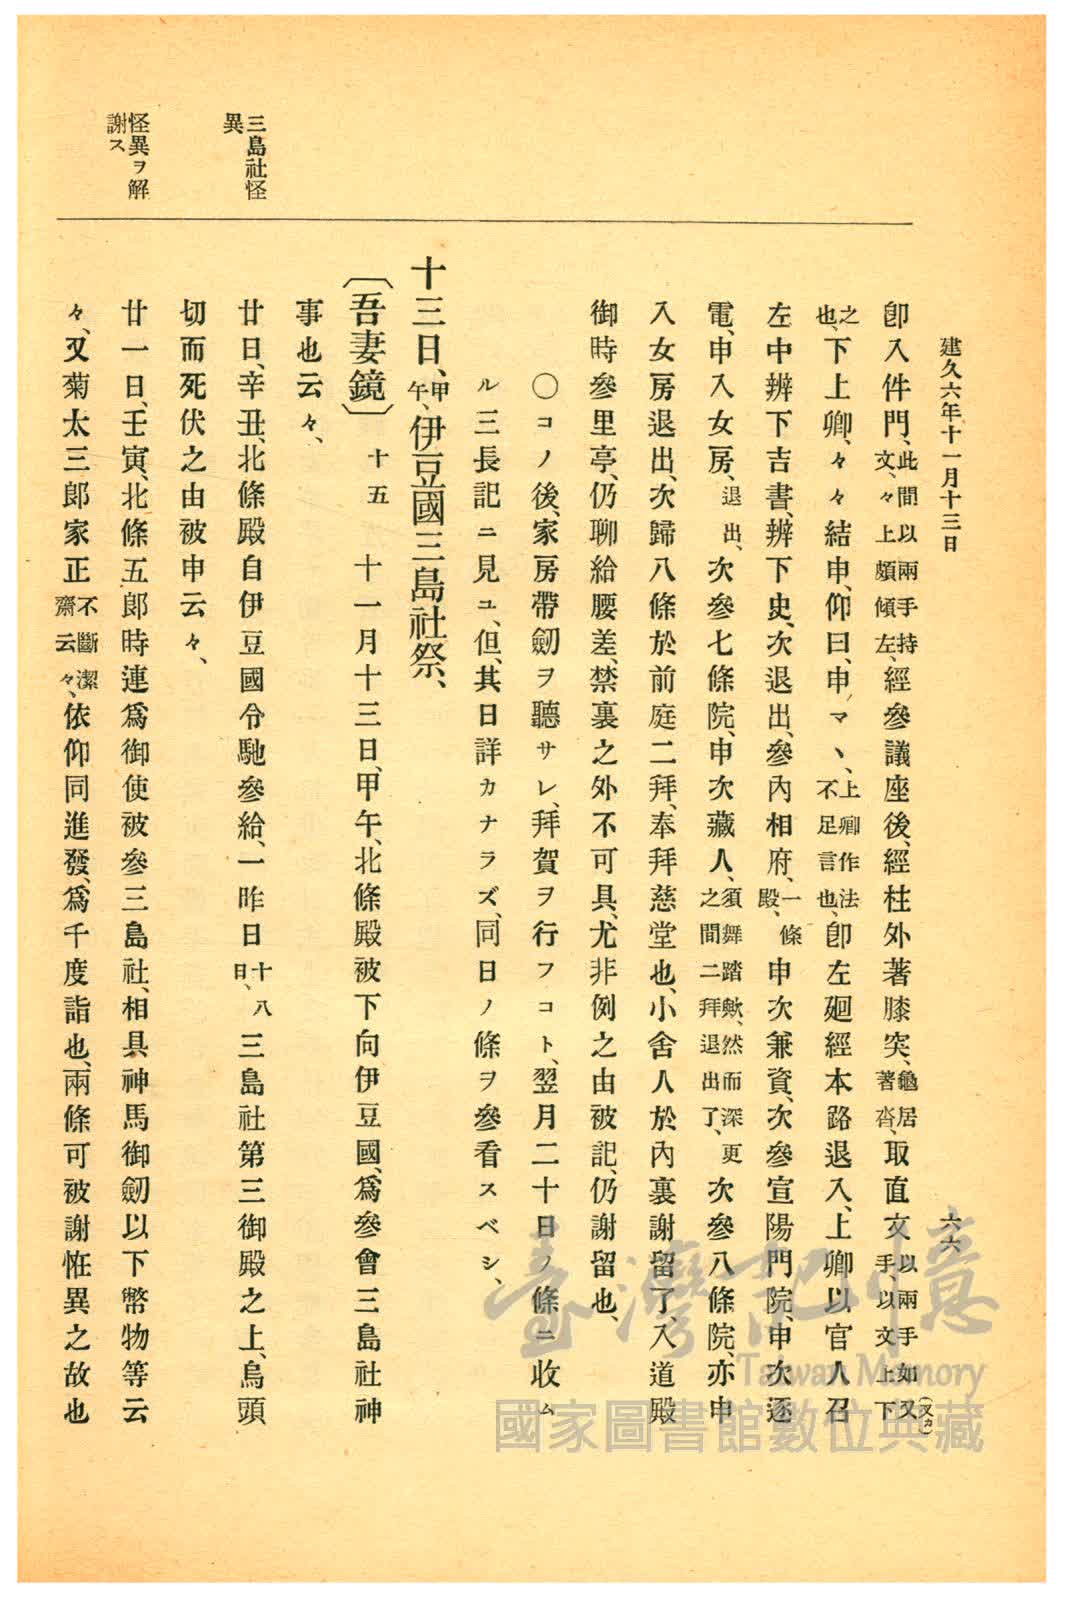 建久六年十一月十三日
六六
卽入件門、此間以兩手持文、々上頗傾左、經參議座後、經柱外著膝突、龜居著沓、取直文、以兩手如又(文カ)手、以文上下
之也、下上卿、々々結申、仰曰、申ノマヽ、上卿作法不足言也、卽左廻經本路退入、上卿以官人召
左中辨下吉書、辨下史、次退出、參內相府、一條殿、申次兼資、次參宣陽門院、申次逐
電、申入女房、退出、次參七條院、申次藏人、須舞踏歟、然而深更之間二拜退出了、次參八條院、亦申
入女房退出、次歸八條於前庭二拜、奉拜慈堂也、小舍人於內裏謝留了、入道殿
御時參里亭、仍聊給腰差、禁裏之外不可具、尤非例之由被記、仍謝留也、
〇コノ後、家房帶劒ヲ聽サレ、拜賀ヲ行フコト、翌月二十日ノ條ニ收ム
ル三長記ニ見ユ、但、其日詳カナラズ、同日ノ條ヲ參看スベシ、
十三日、甲午、伊豆國三島社祭、
〔吾妻鏡〕十五 十一月十三日、甲午、北條殿被下向伊豆國、爲參會三島社神
事也云々、
廿日、辛丑、北條殿自伊豆國令馳參給、一昨日十八日、三島社第三御殿之上、烏頭
切而死伏之由被申云々、
廿一日、壬寅、北條五郎時連爲御使被參三島社、相具神馬御劒以下幣物等云
々、又菊太三郎家正不斷潔齋云々、依仰同進發、爲千度詣也、兩條可被謝恠異之故也
三島社怪異
怪異ヲ解謝ス
臺灣記憶
Taiwan Memory
國家圖書館數位典藏